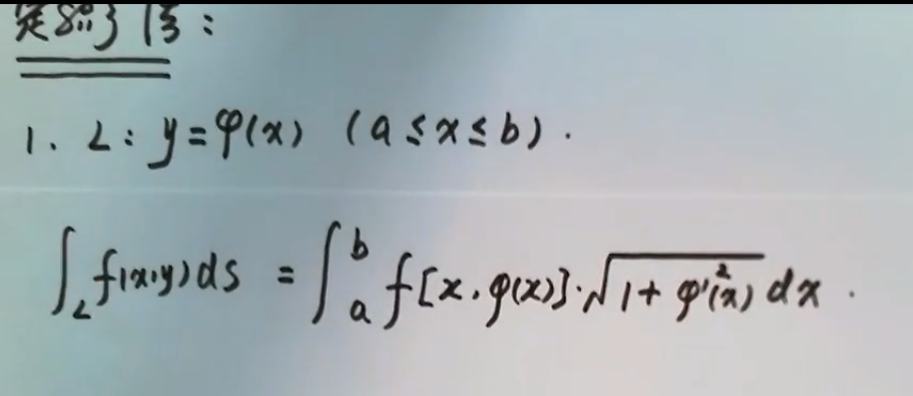 1. L: y=φ(x) (a≤x≤b).
∫_L f(x,y)ds = ∫_a^b f[x,φ(x)]·√(1+φ'²(x)) dx.